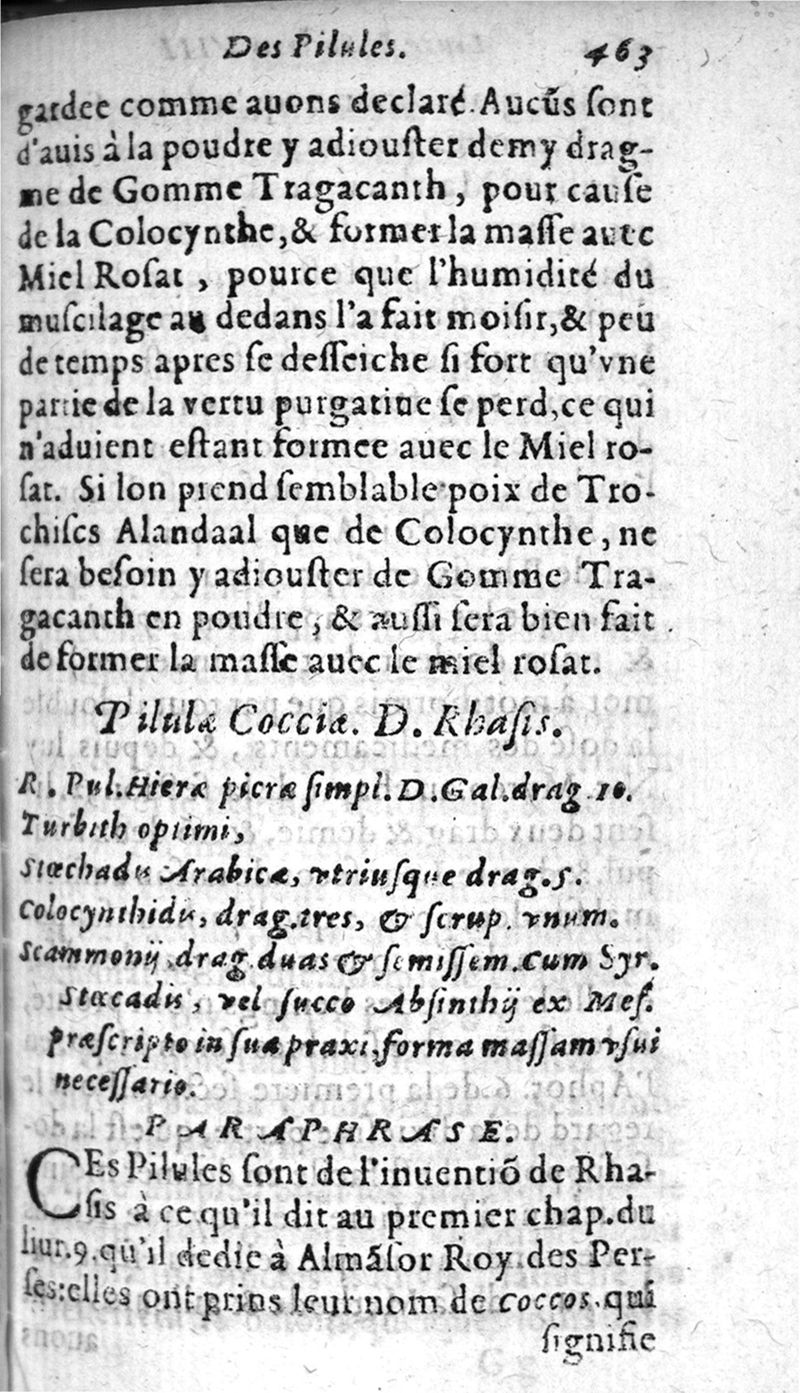 Des Pilules. 463
gardee comme auons declaré. Aucũs ſont
d'auis à la poudre y adiouſter demy drag-
me de Gomme Tragacanth, pour cauſe
de la Colocynthe, & former la maſſe auec
Miel Roſat, pource que l'humidité du
muſcilage au dedans l'a fait moiſir, & peu
de temps apres ſe deſſeiche ſi fort qu'vne
partie de la vertu purgatiue ſe perd, ce qui
n'aduient eſtant formee auec le Miel ro-
ſat. Si lon prend ſemblable poix de Tro-
chiſcs Alandaal que de Colocynthe, ne
ſera beſoin y adiouſter de Gomme Tra-
gacanth en poudre, & auſſi ſera bien fait
de former la maſſe auec le miel roſat.
Pilulæ Cocciæ. D. Rhaſis.
R. Pul. Hieræ picræ ſimpl. D. Gal. drag 10.
Turbith optimi,
Stœchadis Arabicæ, vtriuſque drag. 5.
Colocynthidis, drag. tres, & ſcrup. vnum.
Scammonij. drag. duas & ſemiſſem. Cum Syr.
Stœcadis, vel ſucco Abſinthij ex Meſ.
præſcripto in ſua praxi, forma maſſam vſui
neceſſario.
PARAPHRASE.
CEs Pilules ſont de l'inuentiõ de Rha-
ſis à ce qu'il dit au premier chap. du
liur. 9. qu'il dedie à Almãſor Roy des Per-
ſes: elles ont prins leur nom de coccos, qui
ſignifie